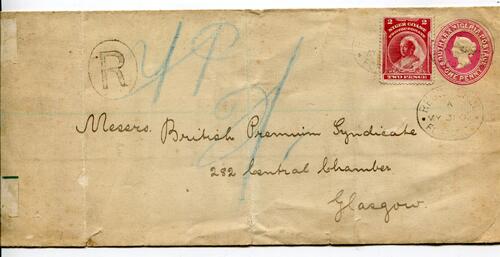 2 2
NIGER COAST
PROTECTORATE
TWO PENCE
SOUTHERN NIGERIA POSTAGE
ONE PENNY
R
Messrs. British Premium Syndicate
282 Central Chamber
Glasgow.
A